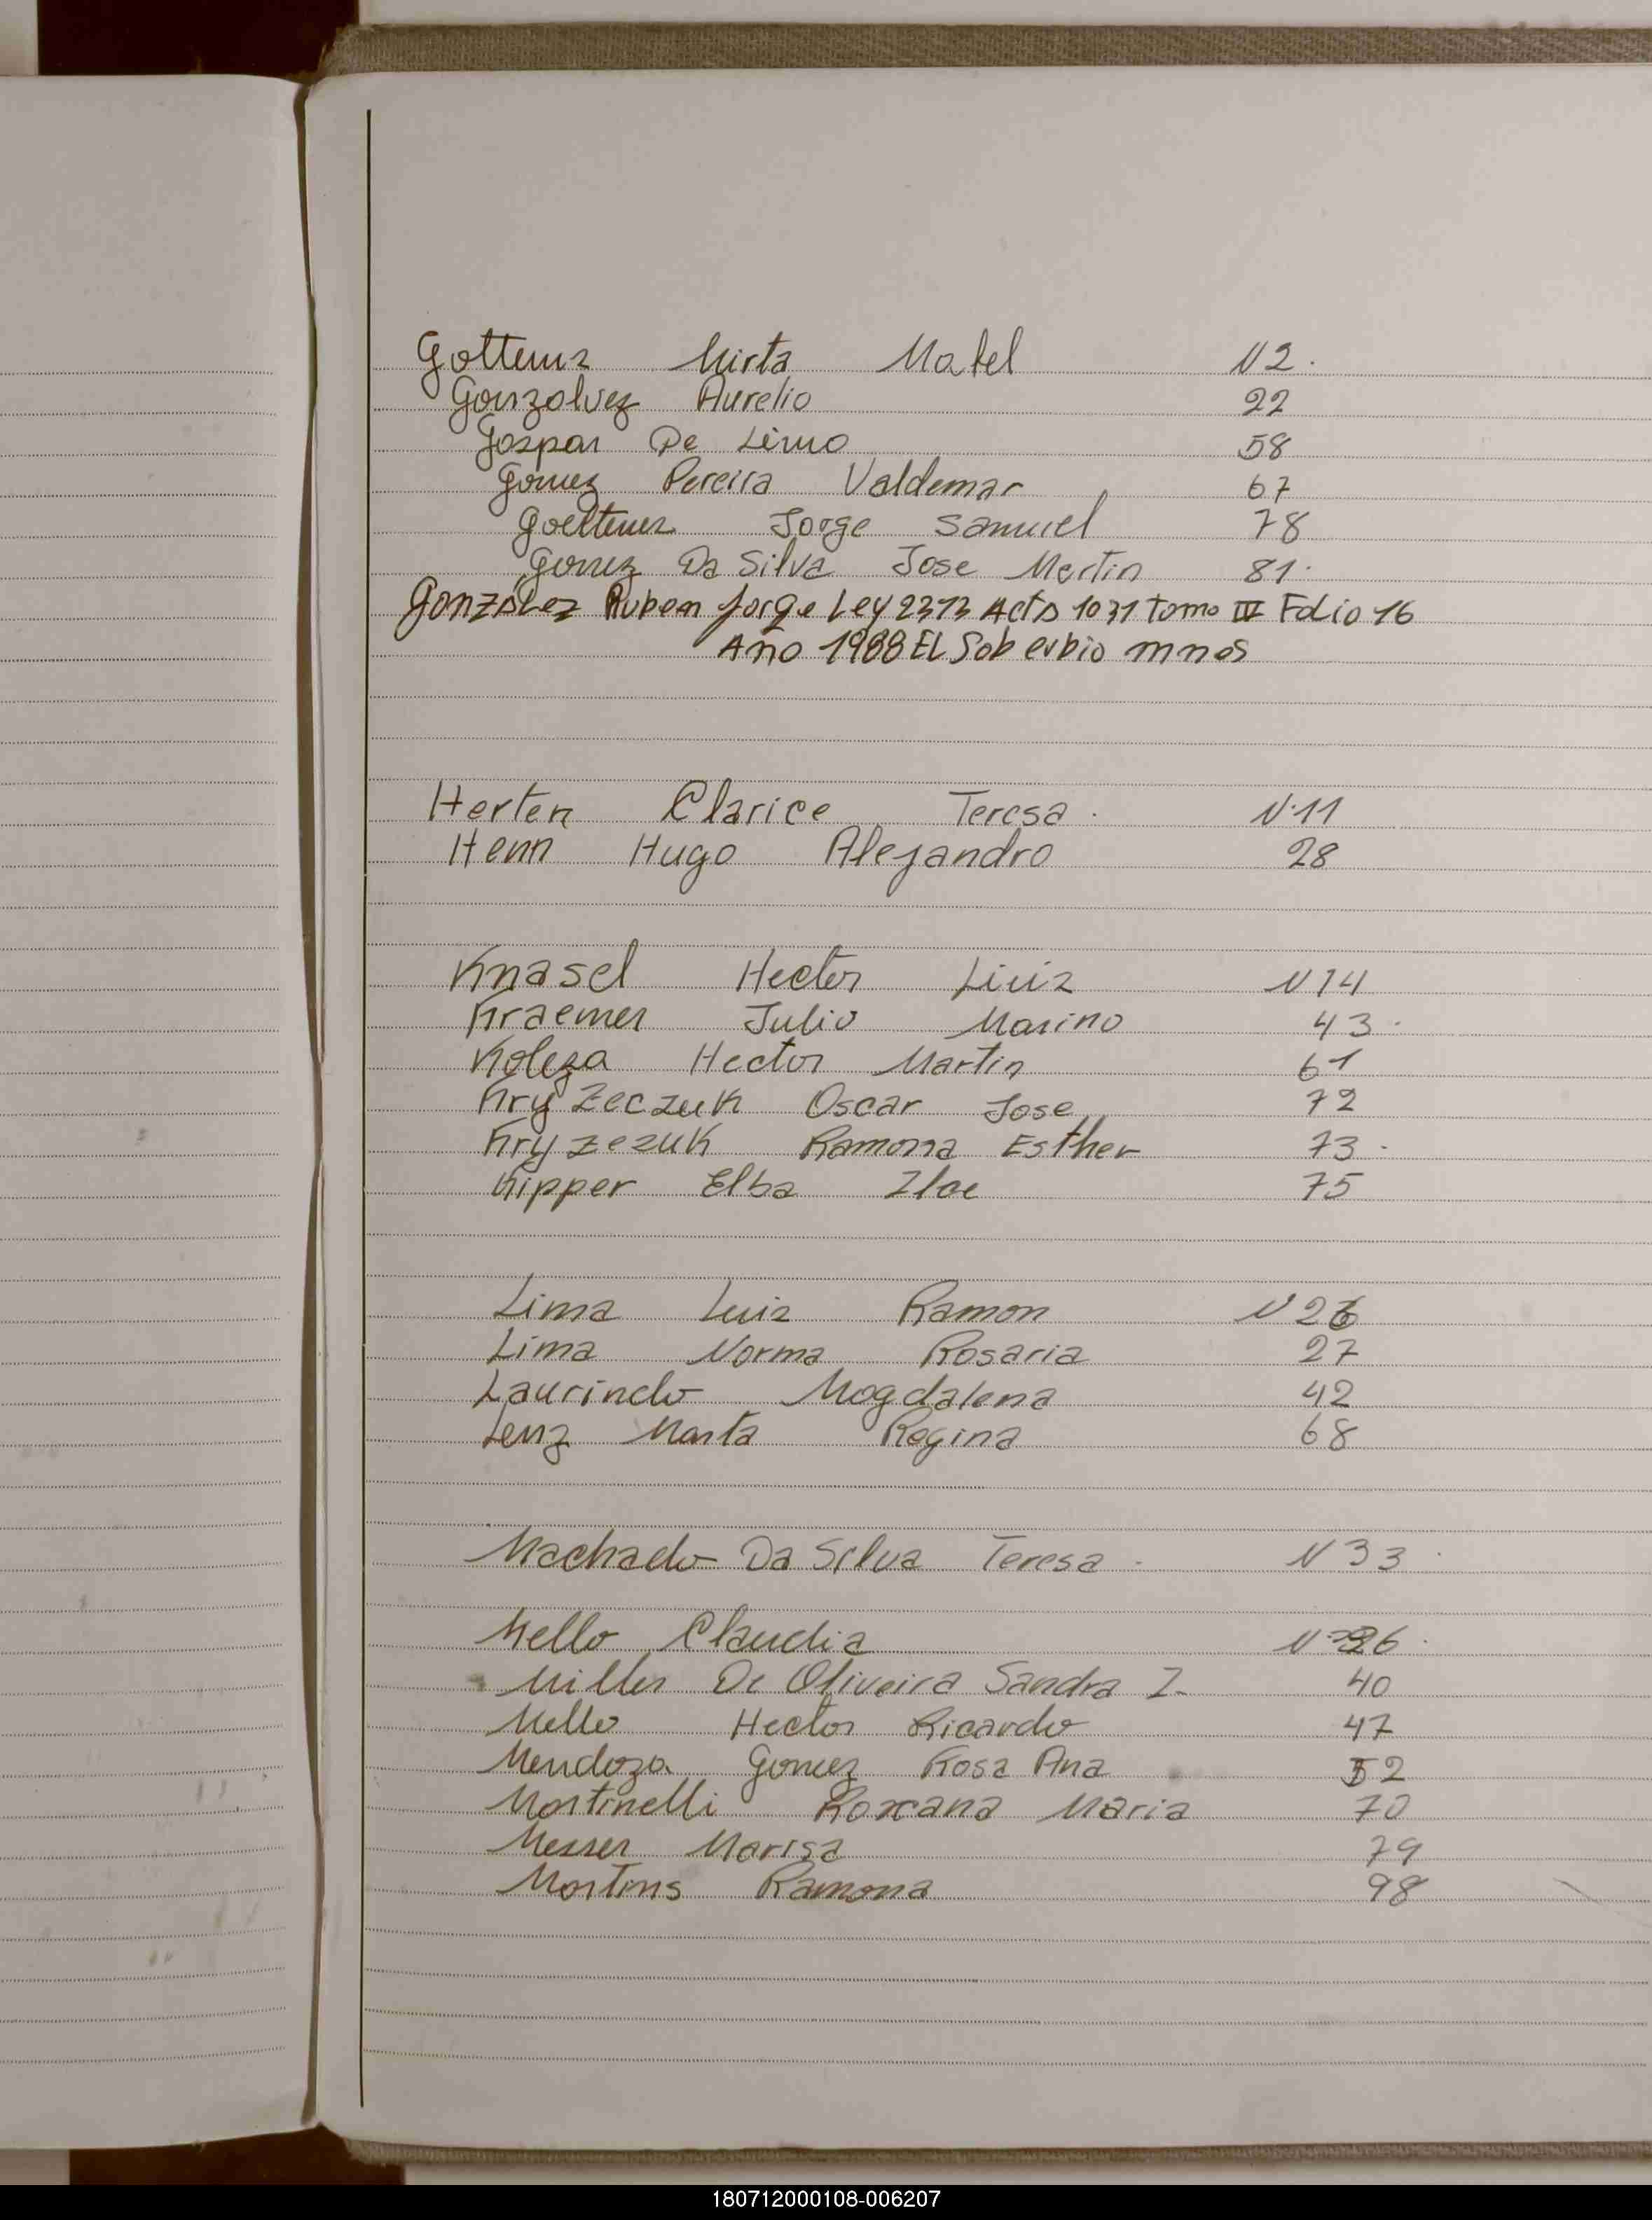 Gottems Mirta Mabel N 2.
Gonzalvez Aurelio 22
Gaspar De Lima 58
Gomez Pereira Valdemar 67
Goettems Jorge Samuel 78
Gomez Da Silva Jose Martin 81.
González Ruben Jorge Ley 2313 Acta 1031 tomo IV Folio 16
Año 1988 EL Soberbio mnes
Herter Clarice Teresa. N. 11
Henn Hugo Alejandro 28
Knasel Hector Luiz N 14
Kraemer Julio Marino 43.
Koleza Hector Martin 61
Kryzeczuk Oscar Jose 72
Kryzezuk Ramona Esther 73.
Kipper Elba Ilae 75
Lima Luiz Ramon N 26
Lima Norma Rosaria 27
Laurindo Magdalena 42
Lenz Marta Regina 68
Machado Da Silva Teresa. N 33.
Mello Claudia N 36.
Miller De Oliveira Sandra I. 40
Mello Hector Ricardo 47
Mendoza Gomez Rosa Ana 52
Martinelli Roxana Maria 70
Messer Marisa 79
Martins Ramona 98
180712000108-006207